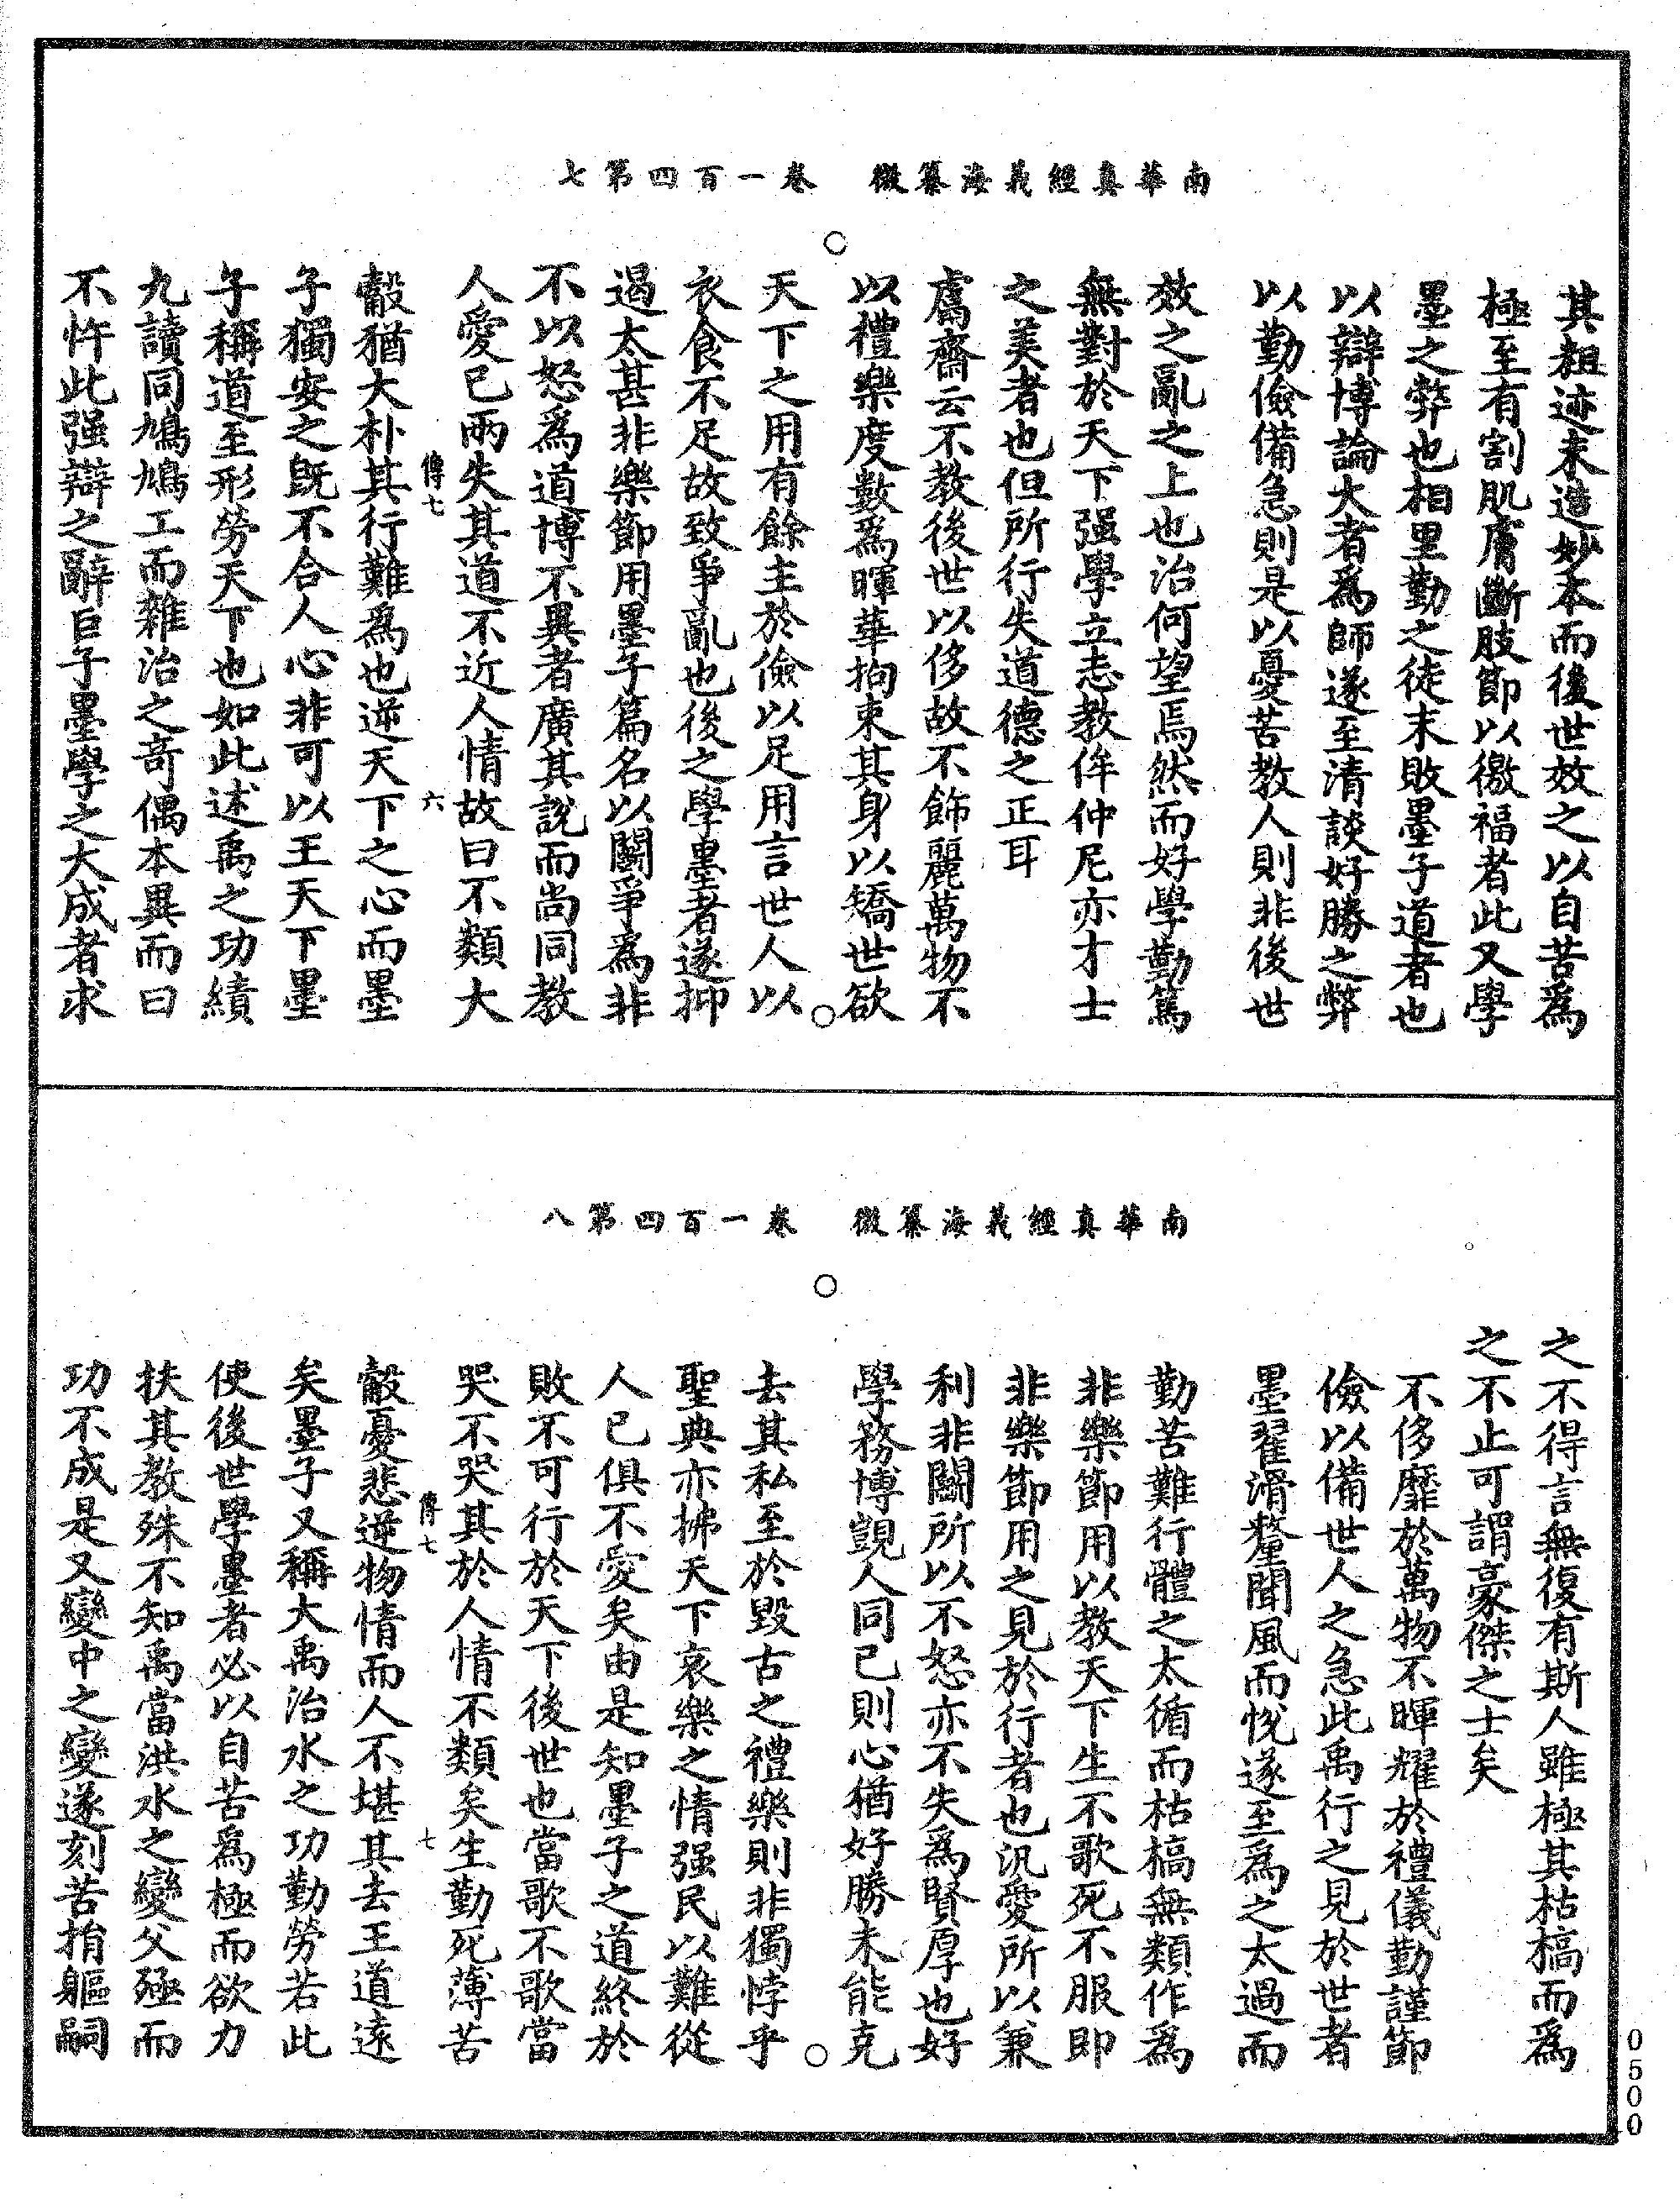 南華真經義海纂微　卷一百四第七
其粗迹未造妙本而後世效之以自苦為
極至有割肌膚斷肢節以徼福者此又學
墨之弊也相里勤之徒末敗墨子道者也
以辯博論大者為師遂至清談好勝之弊
以勤儉備急則是以憂苦教人則非後世
效之亂之上也治何望焉然而好學勤篤
無對於天下强學立志教侔仲尼亦才士
之美者也但所行失道德之正耳
鬳齋云不教後世以侈故不飾麗萬物不
以禮樂度數為暉華拘束其身以矯世欲
天下之用有餘主於儉以足用言世人以
衣食不足故致爭亂也後之學墨者遂抑
遏太甚非樂節用墨子篇名以鬭爭為非
不以怒為道博不異者廣其說而尚同教
人愛已兩失其道不近人情故曰不類大
觳猶大朴其行難為也逆天下之心而墨
子獨安之既不合人心非可以王天下墨
子稱道至形勞天下也如此述禹之功績
九讀同鳩鳩工而雜治之奇偶本異而曰
不忤此强辯之辭巨子墨學之大成者求
傳七　六
南華真經義海纂微　卷一百四第八
之不得言無復有斯人雖極其枯槁而為
之不止可謂豪傑之士矣
不侈靡於萬物不暉耀於禮儀勤謹節
儉以備世人之急此禹行之見於世者
墨翟滑釐聞風而悅遂至為之太過而
勤苦難行體之太循而枯槁無類作為
非樂節用以教天下生不歌死不服即
非樂節用之見於行者也汎愛所以兼
利非鬭所以不怒亦不失為賢厚也好
學務博覬人同已則心猶好勝未能克
去其私至於毀古之禮樂則非獨悖乎
聖典亦拂天下哀樂之情强民以難從
人已俱不愛矣由是知墨子之道終於
敗不可行於天下後世也當歌不歌當
哭不哭其於人情不類矣生勤死薄苦
觳憂悲逆物情而人不堪其去王道遠
矣墨子又稱大禹治水之功勤勞若此
使後世學墨者必以自苦為極而欲力
扶其教殊不知禹當洪水之變父殛而
功不成是又變中之變遂刻苦捐軀嗣
傳七　七
0500